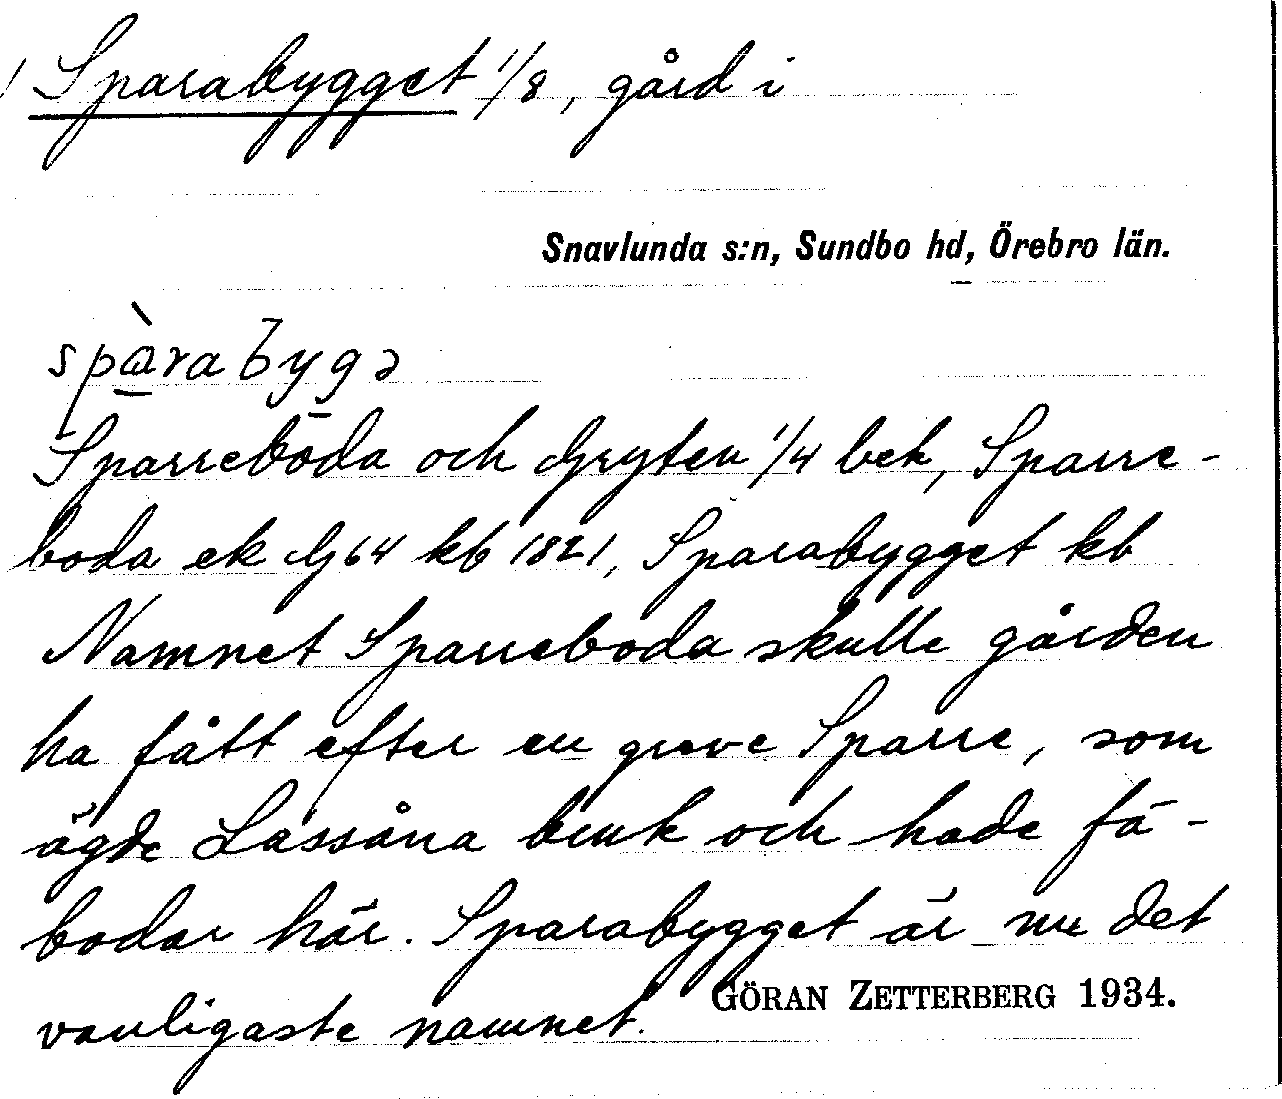 Sparabygget 1/8, gård i
Snavlunda s:n, Sundbo hd, Örebro län.
spàrabygə
Sparreboda och Gryten 1/4 bek, Sparre-
boda ek G64 kb 1821, Sparabygget kb
Namnet Sparreboda skulle gården
ha fått efter en greve Sparre, som
ägde Lassåna bruk och hade fä-
bodar här. Sparabygget är nu det
vanligaste namnet.
GÖRAN ZETTERBERG 1934.